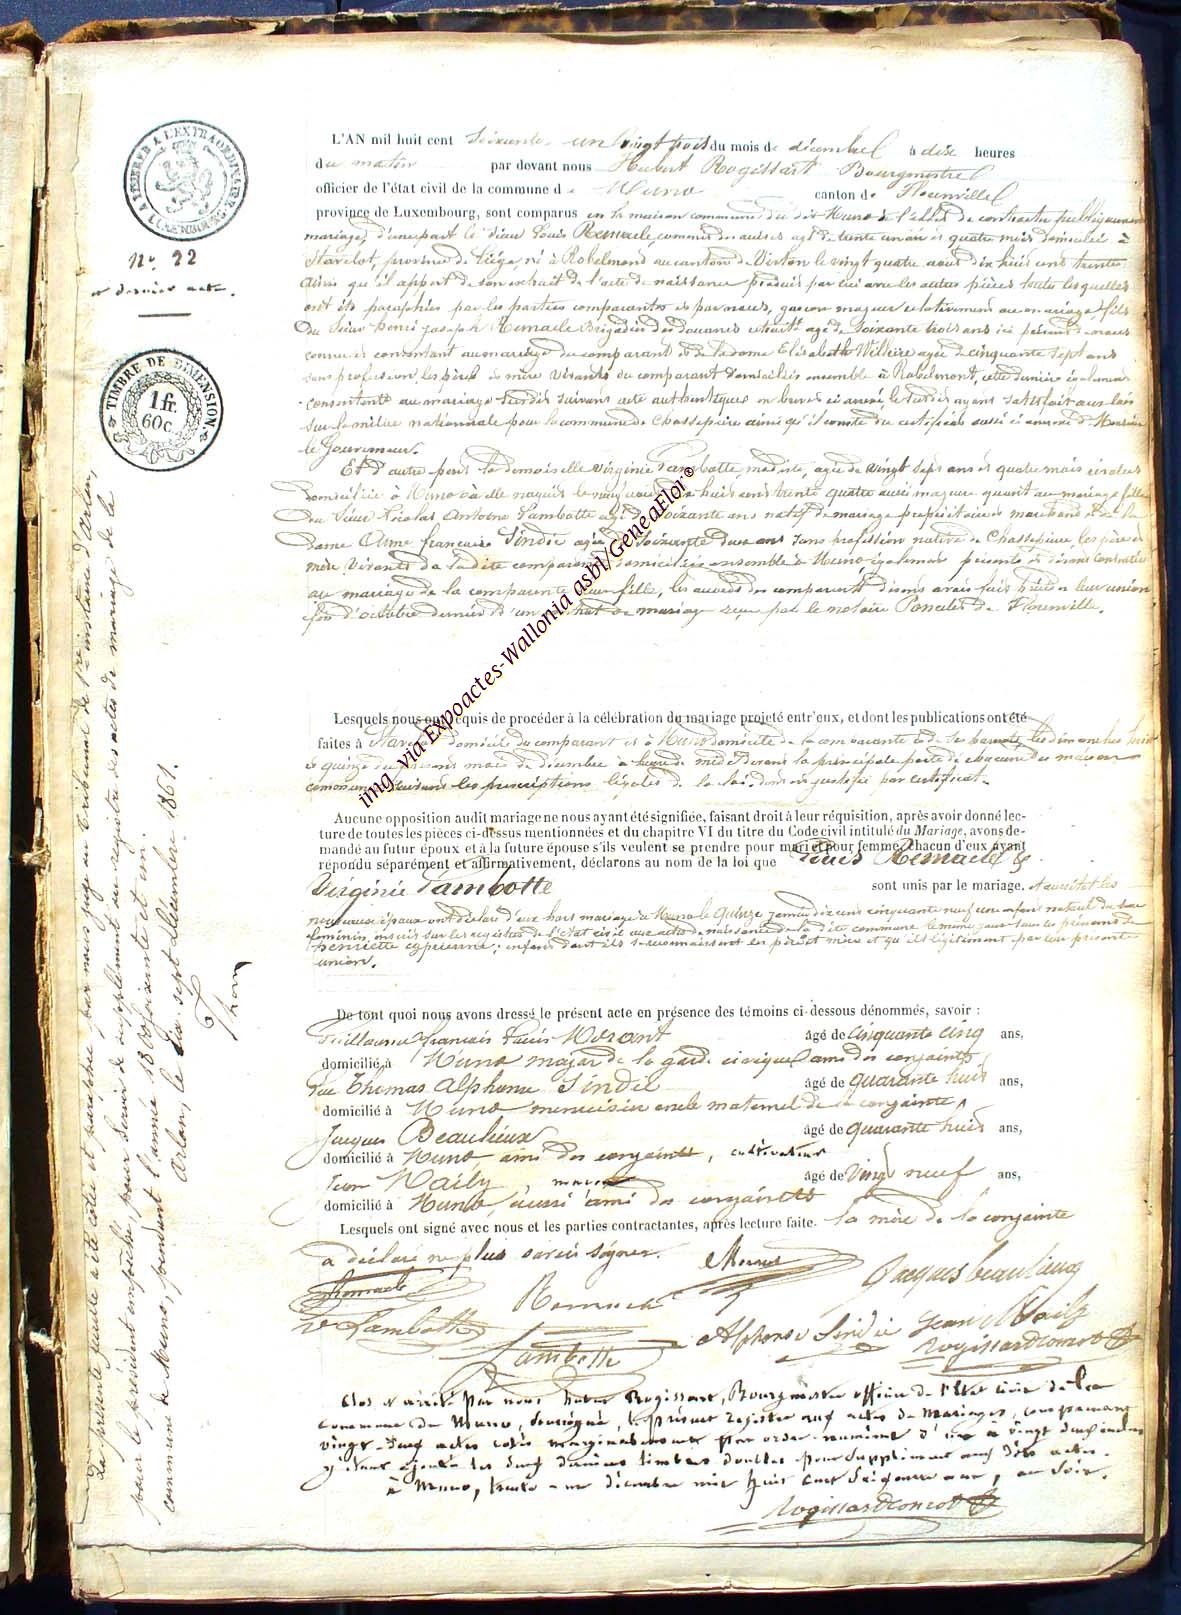 TIMBRE A L'EXTRAORDINAIRE
LUXEMBOURG
No. 22
et dernier acte.
TIMBRE DE DIMENSION.
1 fr.
60 c.
L'AN mil huit cent soixante-un vingt trois du mois de décembre à dix heures
du matin par devant nous Hubert Rogissart Bourgmestre
officier de l'état civil de la commune de Muno canton de Florenville
province de Luxembourg, sont comparus en la maison commune du dit Muno à l'effet de contracter publiquement
mariage, d'une part le sieur Louis Remacle, commis des accises agé de trente un an et quatre mois domicilié à
Stavelot, province de Liège, né à Robelmont au canton de Virton le vingt quatre aout dix huit cent trente
ainsi qu'il appert de son extrait de l'acte de naissance produit par lui avec les autres pièces toutes lesquelles
ont été paraphées par les parties comparantes et par nous, garçon majeur relativement au mariage, fils
du Sieur Henri Joseph Remacle Brigadier des douanes retraité agé de soixante trois ans ici présent de nous
connu et consentant au mariage du comparant et de la dame Elisabeth Willeire agée de cinquante sept ans
sans profession, les père et mère vivants du comparant domiciliés ensemble à Robelmont, cette dernière également
consentante au mariage susdit suivant acte authentique en brevet ci annexé, le susdit ayant satisfait aux lois
sur la milice nationale pour la commune de Chassepierre ainsi qu'il conste du certificat aussi ci annexé de Monsieur
le Gouverneur.
Et d'autre part la demoiselle Virginie Lambotte, modiste, agée de vingt sept ans et quatre mois
domiciliée à Muno où elle naquit le huit cent trente quatre aussi majeure quant au mariage fille
du Sieur Nicolas Antoine Lambotte agé de soixante ans natif de propriétaire et marchand et de la
dame Anne françoise Sindic agée de soixante deux ans sans profession native de Chassepierre, les père et
mère vivants de la dite comparante domiciliés ensemble à Muno également présents et disant consentir
au mariage de la comparante leur fille, les comparants disent avoir fait précéder leur union
fin d'octobre dernier d'un contrat de mariage reçu par le notaire Poncelet de Florenville.
Lesquels nous ont requis de procéder à la célébration du mariage projeté entr'eux, et dont les publications ont été
faites à Stavelot domicile du comparant et à Muno domicile de la comparante et de ses parents, les dimanches huit
et quinze du présent mois de décembre à heure de midi devant la principale porte de chacune des maisons
communes suivant les prescriptions légales de la loi, dûment justifié par certificat.
Aucune opposition audit mariage ne nous ayant été signifiée, faisant droit à leur réquisition, après avoir donné lec-
ture de toutes les pièces ci-dessus mentionnées et du chapitre VI du titre du Code civil intitulé du Mariage, avons de-
mandé au futur époux et à la future épouse s'ils veulent se prendre pour mari et pour femme, chacun d'eux ayant
répondu séparément et affirmativement, déclarons au nom de la loi que Louis Remacle &
Virginie Lambotte sont unis par le mariage. Et aussitôt les
nouveaux époux ont déclaré d'eux hors mariage à Muno le quinze janvier dix cent cinquante neuf un enfant naturel du sexe
féminin, inscrit sur les registres de l'état civil aux actes de naissance de la dite commune le même jour sous les prénoms de
henriette cyprienne; enfant dont ils se reconnaissent les père et mère et qu'ils légitiment par leur présente
union.
De tout quoi nous avons dressé le présent acte en présence des témoins ci-dessous dénommés, savoir :
Guillaume François Louis Morant âgé de cinquante cinq ans,
domicilié à Muno major de la garde civique, ami des conjoints
Thomas Alphonse Sindic âgé de quarante huit ans,
domicilié à Muno menuisier oncle maternel de la conjointe
Jacques Beaulieux âgé de quarante huit ans,
domicilié à Muno, ami des conjoints, cultivateur
Jean Wailz, âgé de vingt neuf ans,
domicilié à Muno, aussi ami des conjoints
Lesquels ont signé avec nous et les parties contractantes, après lecture faite. la mère de la conjointe
a déclaré ne plus savoir signer.
Remacle
Remacle
Morant
Jacques beaulieux
Ve Lambotte
Lambotte
Alphonse Sindic
Jean Wailz
Rogissart
Clos et arrêté par nous, Hubert Rogissart, Bourgmestre officier de l'Etat civil de la
commune de Muno, soussigné, le présent registre aux actes de Mariages, comprenant
vingt-deux actes cotés marginalement par ordre numéroté d'un à vingt deux inclus
y étant ajouté les deux derniers timbres doubles pour supplément aux dits actes.
à Muno, trente-un décembre mil huit cent soixante un, au soir.
Rogissart
La présente feuille a été cotée et paraphée par nous juge au tribunal de 1re instance d'Arlon,
pour le président empêché, pour servir de supplément au registre des actes de mariage de la
commune de Muno, pendant l'année 1800 soixante et un.
Arlon, le sept décembre 1861.
img via Expoactes-Wallonia asbl/GeneaFlor©